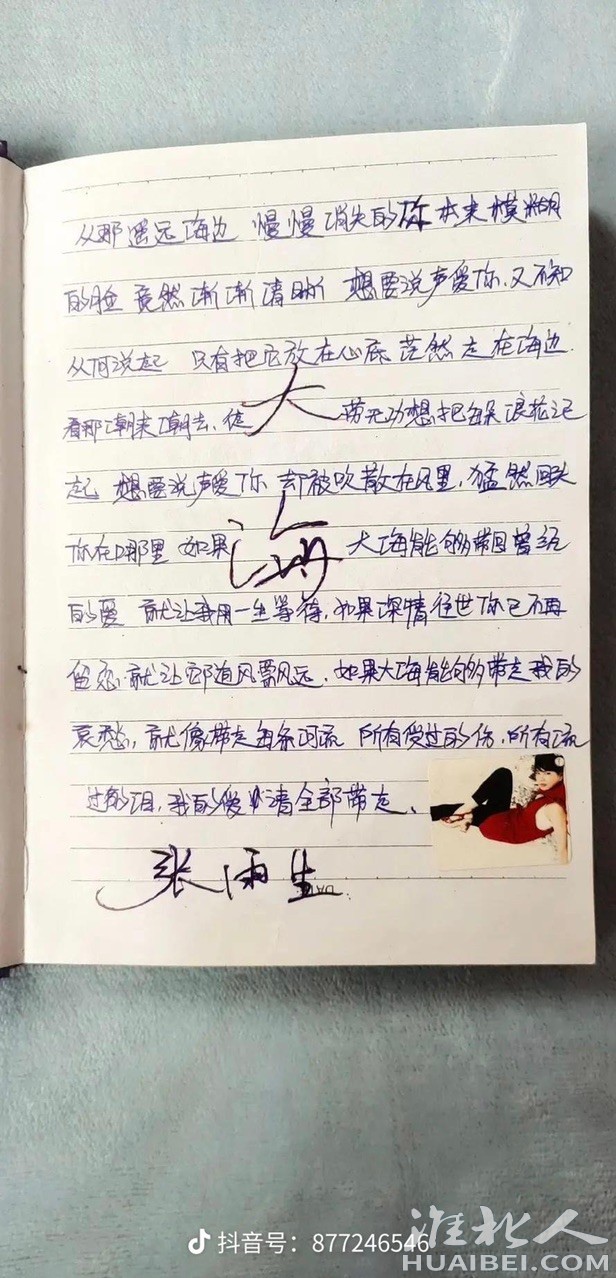 从那遥远海边 慢慢消失的你 本来模糊
的脸 竟然渐渐清晰 想要说声爱你,又不知
从何说起 只有把它放在心底 茫然走在海边
看那潮来潮去,徒 劳无功想把每朵浪花记
大
起 想要说声爱你 却被吹散在风里,猛然回头
你在哪里 如果 大海能够带回曾经
海
的爱 就让我用一生等待,如果深情往世你已不再
留恋 就让它随风飘远,如果大海能够带走我的
哀愁,就像带走每条河流 所有受过的伤,所有流
过的泪,我的爱 请全部带走、
张雨生
DATE
抖音号:877246546
淮北人
HUAIBEI.COM